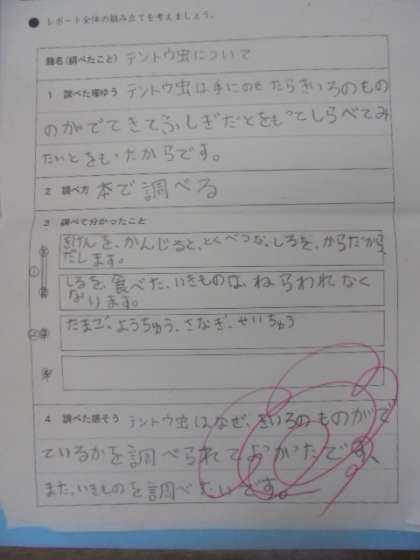 ● レポート全体の組み立てを考えましょう。
題名(調べたこと) テントウ虫について
1 調べた理ゆう テントウ虫は手にのせたらきいろのもの
のがでてきてふしぎだとをもってしらべてみ
たいとをもったからです。
2 調べ方 本で調べる
3 調べて分かったこと
きけんを、かんじると、とくべつな、しるを、からだから
だします。
しるを、食べた、いきものは、ねらわれなく
なります。
たまご、ようちゅう、さなぎ、せいちゅう
4 調べた感そう テントウ虫はなぜ、きいろのものがで
ているかを調べられてよかったです、
また、いきものを調べたいです。